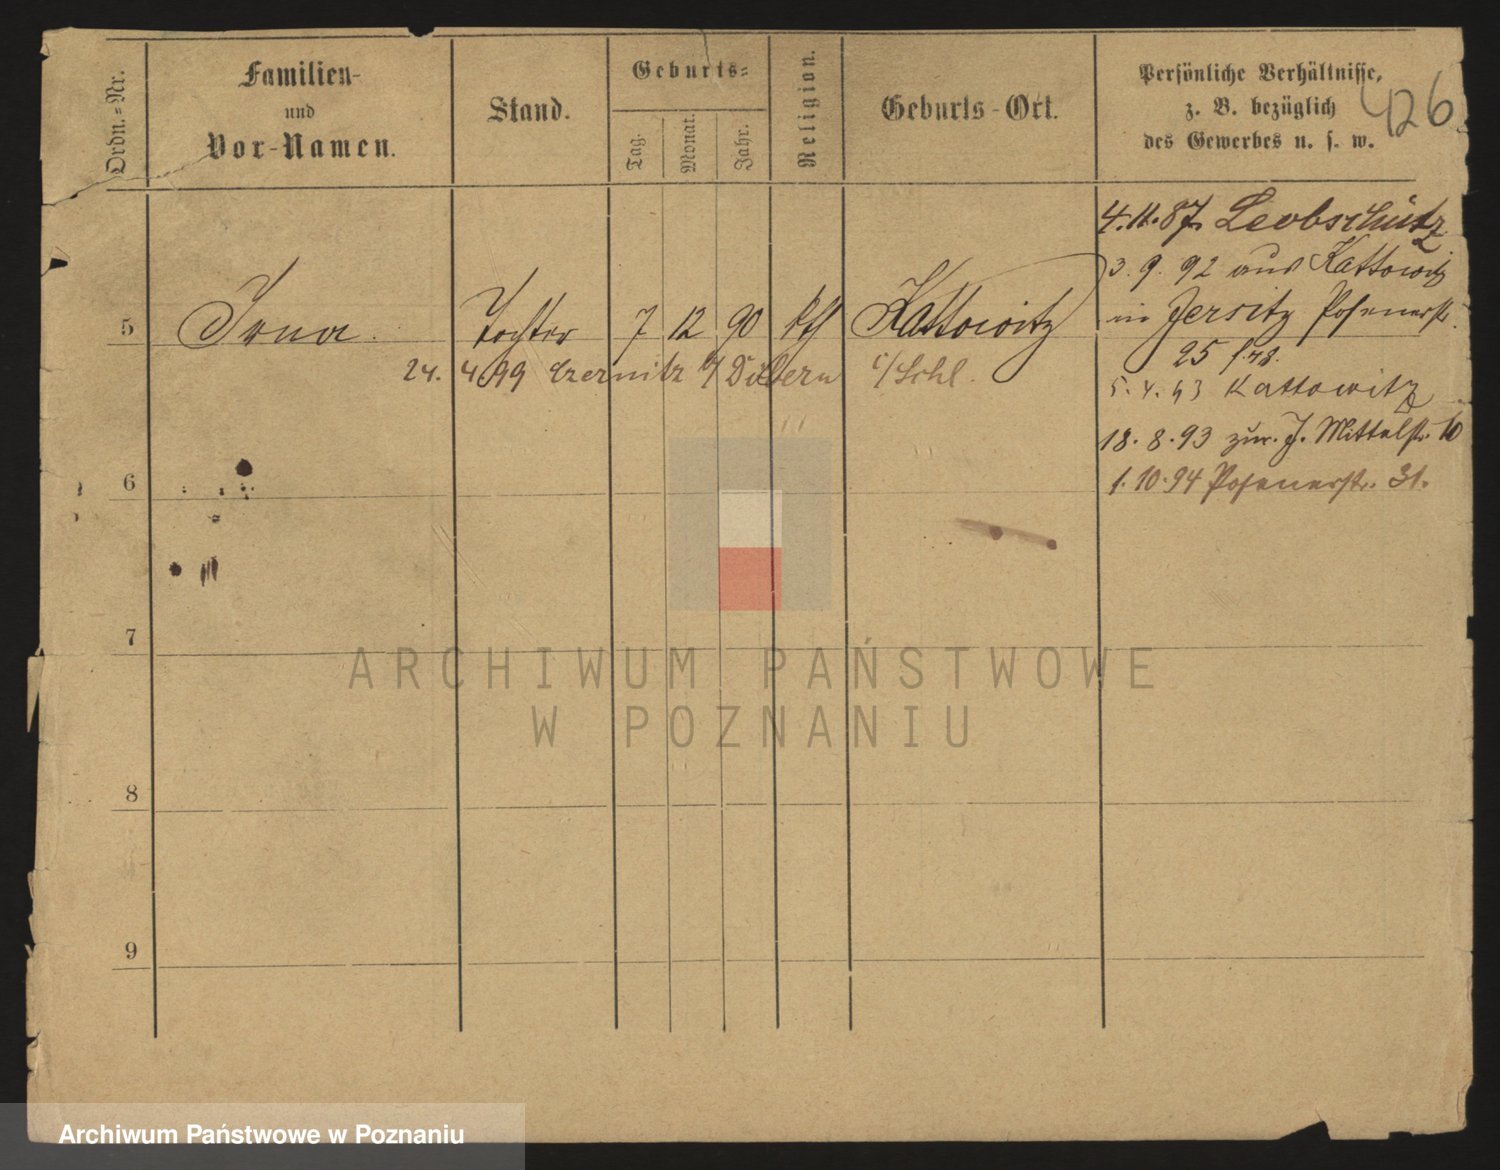 Ordn.-Nr.
Familien-
und
Vor-Namen.
Stand.
Geburts-
Tag.
Monat.
Jahr.
Religion.
Geburts-Ort.
Persönliche Verhältnisse,
z. B. bezüglich
des Gewerbes u. s. w.
426
4.11.87. Leobschütz
3. 9. 92 aus Kattowitz
5 Irna. Tochter 7 12 90 kth Kattowitz
in Jersitz Posenerstr.
25
24. 4.99 Czernitz i/Schl.
5. 4. 93 Kattowitz
18. 8. 93 zur. J. Mittelstr. 10
6
1. 10. 94 Posenerstr. 31.
7
8
9
ARCHIWUM PAŃSTWOWE
W POZNANIU
Archiwum Państwowe w Poznaniu